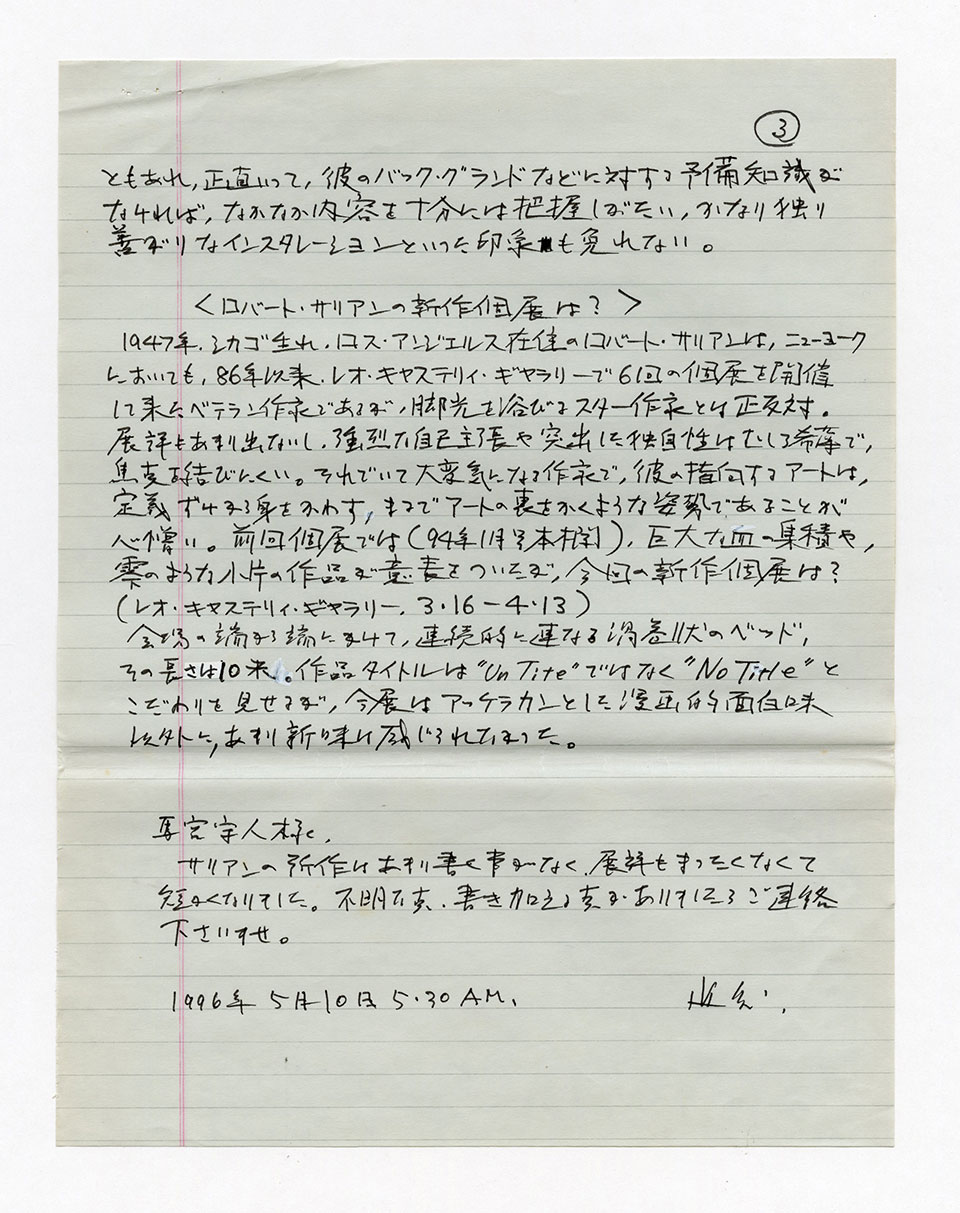 3
ともあれ,正直いって,彼のバック・グランドなどに対する予備知識が
なければ,なかなか内容を十分には把握しがたい,かなり独り
善がりなインスタレーションといった印象も免れない。
<ロバート・サリアンの新作個展は?>
1947年.シカゴ生れ.ロス・アンジェルス在住のロバート・サリアンは,ニューヨーク
においても,86年以来.レオ・キャステリィ・ギャラリーで6回の個展を開催
して来たベテラン作家であるが,脚光を浴びるスター作家とは正反対.
展評もあまり出ないし.強烈な自己主張や突出した独自性はむしろ希薄で,
焦点を結びにくい。それでいて大変気になる作家で,彼の指向するアートは,
定義ずけから身をかわす,まるでアートの裏をかくような姿勢であることが
心憎い。前回個展では(94年11月号本欄),巨大な皿の集積や,
雫のような小片の作品が意表をついたが,今回の新作個展は?
(レオ・キャステリィ・ギャラリー.3・16-4・13)
会場の端から端にかけて,連続的に連なる渦巻状のベッド,
その長さは10米。作品タイトルは"UnTite"ではなく"NoTitle"と
こだわりを見せるが,今展はアッケラカンとした漫画的面白味
以外に,あまり新味は感じられなかった。
馬宮守人様.
サリアンの新作はあまり書く事がなく.展評もまったくなくて
短かくなりました。不明な点.書き加える点がありましたらご連絡
下さいませ。
1996年 5月10日 5.30 A.M.